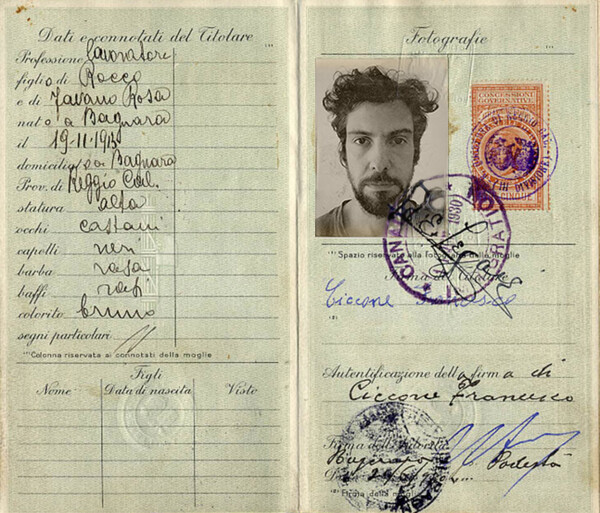 Dati e connotati del Titolare
Professione lavoratore
figlio di Rocco
e di Zavano Rosa
nato a Bagnara
il 19-11-913
domiciliato a Bagnara
Prov. di Reggio Cal.
statura alta
occhi castani
capelli neri
barba rasa
baffi rasi
colorito bruno
segni particolari
Colonna riservata ai connotati della moglie
Figli
Nome Data di nascita Visto
Fotografie
CONCESSIONI
GOVERNATIVE
CINQUE
CANADIAN IMMIGRATION
1930
Spazio riservato alla fotografia della moglie
Firma del Titolare
Ciccone Francesco
Autentificazione della firma di
Ciccone Francesco
Firma dell'Autorità
Podestà
Firma della moglie